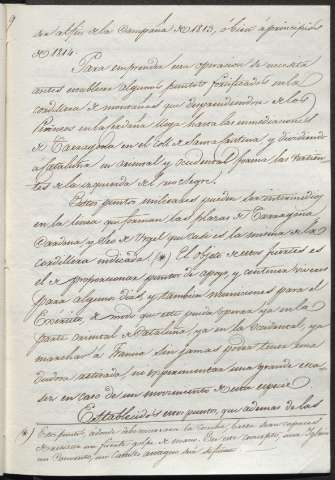 9
en el fin de la Campaña de 1813, ó bien á principios
de 1814.
Para emprender una operacion de
antes establecer algunos puntos fortificados en la
cordillera de montañas que desprendiendose de los
Pirineos en la Cerdaña llega hasta las inmediaciones
de Tarragona en el Coll de Santa Cristina, y dividiendo
á Cataluña en oriental y occidental forma las vertien-
tes de la izquierda del rio Segre.
Estos puntos enlazados pueden ser intermedios
en la linea que forman las plazas de Tarragona,
Cardona, y Seo de Urgel que casi es la misma de la
cordillera indicada. (*) El objeto de estos fuertes es
el de proporcionar puntos de apoyo y contener víveres
para algunos dias, y tambien municiones para el
Egército, de modo que este pueda operar ya en la
parte oriental de Cataluña, ya en la occidental, ya
marchar á Francia sin jamas poder tener una
dudosa retirada, ni experimentar una grande esca-
sez en caso de un movimiento de esta especie.
Establecidos estos puntos, que ademas de las
(*) Estos puntos, adonde debe marcar la Tropa, basta sean capaces
de resistir un fuerte golpe de mano. En este concepto, una Iglesia
un Convento, un Castillo antiguo será suficiente.